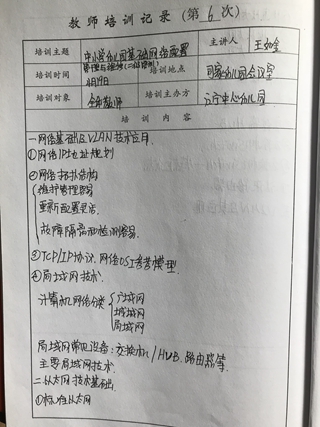 教师培训记录(第6次)
培训主题 中小学幼儿园基础网络配置管理与维护(二级培训) 主讲人 王如全
培训时间 4月19日 培训地点 司家幼儿园会议室
培训对象 全体教师 培训主办方 中心幼儿园
培训内容
一.网络基础及VLAN技术应用
①网络IP地址规划
②网络拓扑结构
维护管理容易
重新配置灵活
故障隔离和检测容易
③TCP/IP协议.网络OSI参考模型
④局域网技术.
计算机网络分类{广域网
城域网
局域网
局域网常见设备:交换机/HUB.路由器等
主要局域网技术.
二.以太网技术基础
①标准以太网